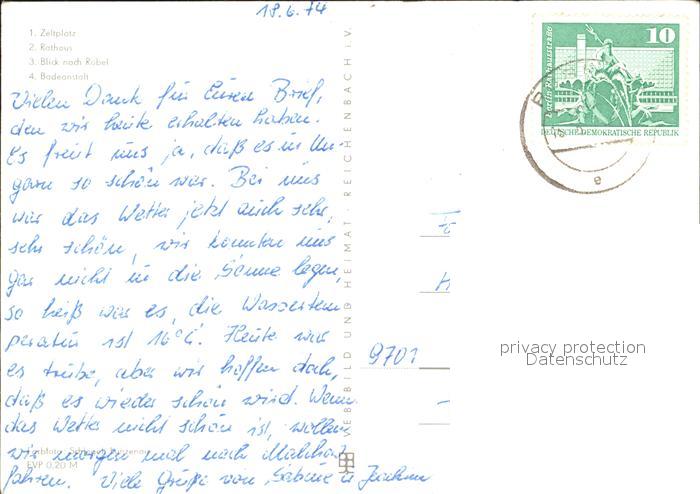 18.6.74
1. Zeltplatz
2. Rathaus
3. Blick nach Röbel
4. Badeanstalt
Vielen Dank für Euren Brief,
den wir heute erhalten haben.
Es freut uns ja, daß es in Un-
garn so schön war. Bei uns
war das Wetter jetzt auch sehr,
sehr schön, wir konnten uns
gar nicht in die Sonne legen,
so heiß war es, die Wassertem
peratur ist 16°C. Heute war
es trübe, aber wir hoffen doch,
daß es wieder schön wird. Wenn
das Wetter nicht schön ist, wollen
wir morgen mal nach Malchow
fahren. Viele Grüße von Sabine u.
EVP 0,20 M
BILD UND HEIMAT REICHENBACH i.V.
10
Berlin, Rathausstraße
DEUTSCHE DEMOKRATISCHE REPUBLIK
e
9701
privacy protection
Datenschutz